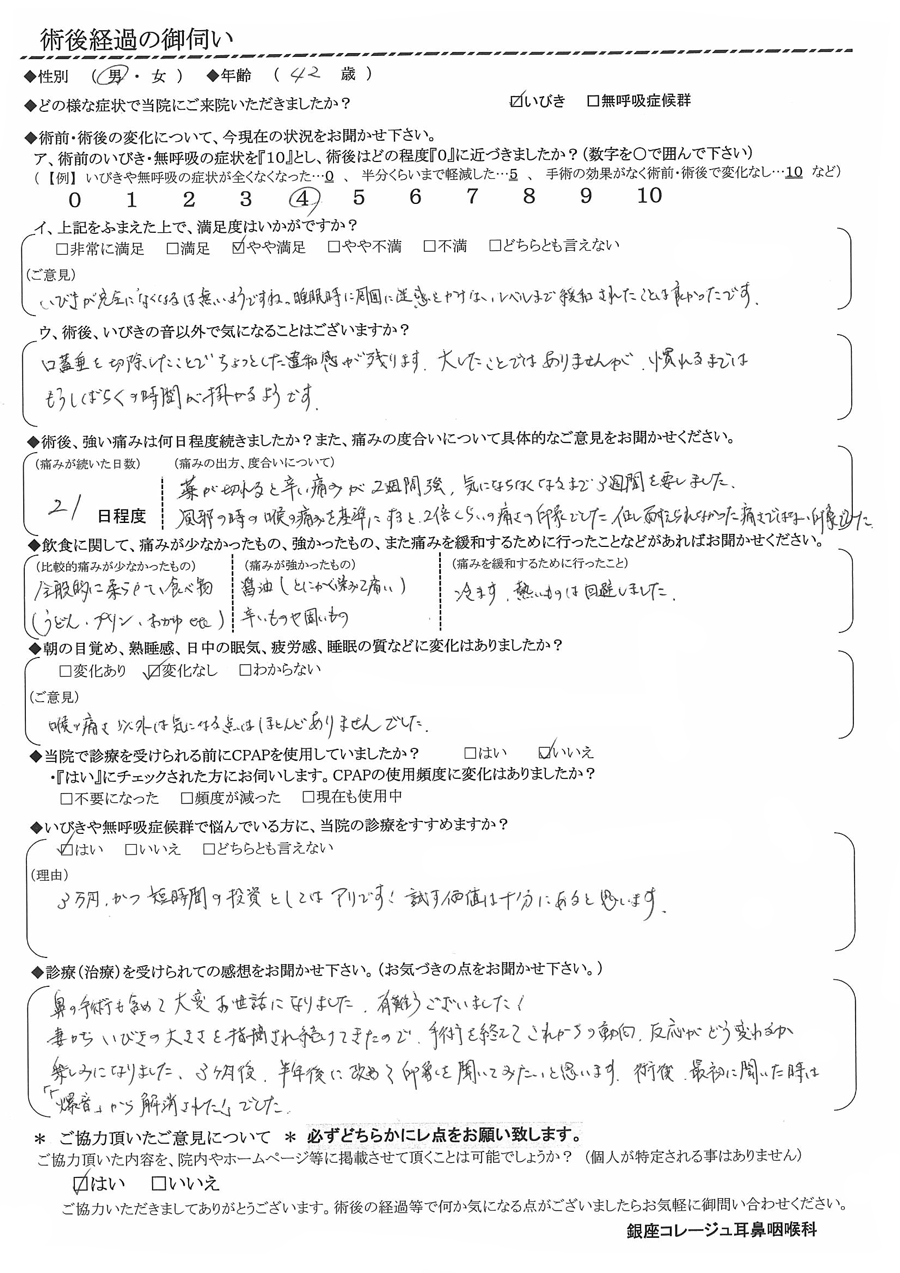 術後経過の御伺い
◆性別 （ 男 ・ 女 ） ◆年齢 （ 42 歳 ）
◆どの様な症状で当院にご来院いただきましたか？ ☑いびき □無呼吸症候群
◆術前・術後の変化について、今現在の状況をお聞かせ下さい。
ア、術前のいびき・無呼吸の症状を『10』とし、術後はどの程度『0』に近づきましたか？（数字を○で囲んで下さい）
（【例】 いびきや無呼吸の症状が全くなくなった…0 、 半分くらいまで軽減した…5 、 手術の効果がなく術前・術後で変化なし…10 など）
0 1 2 3 4 5 6 7 8 9 10
イ、上記をふまえた上で、満足度はいかがですか？
□非常に満足 □満足 ☑やや満足 □やや不満 □不満 □どちらとも言えない
（ご意見）
いびきが完全になくなるは無いようですね。睡眠時に周囲に迷惑をかけないレベルまで緩和されたことは良かったです。
ウ、術後、いびきの音以外で気になることはございますか？
口蓋垂を切除したことでちょっとした違和感が残ります。大したことではありませんが、慣れるまでは
もうしばらくの時間が掛かるようです。
◆術後、強い痛みは何日程度続きましたか？また、痛みの度合いについて具体的なご意見をお聞かせください。
（痛みが続いた日数） （痛みの出方、度合いについて）
薬が切れると辛い痛みが2週間強、気にならなくなるまで3週間を要しました。
21 日程度 風邪の時の喉の痛みを基準にすると、2倍くらいの痛さの印象でした。但し耐えられなかった痛さではない印象でした
◆飲食に関して、痛みが少なかったもの、強かったもの、また痛みを緩和するために行ったことなどがあればお聞かせください。
（比較的痛みが少なかったもの） （痛みが強かったもの） （痛みを緩和するために行ったこと）
全般的に柔らかい食べ物 醤油（とにかく染みて痛い） 冷ます、熱いものは回避しました。
（うどん、プリン、おかゆ etc） 辛いものや固いもの
◆朝の目覚め、熟睡感、日中の眠気、疲労感、睡眠の質などに変化はありましたか？
□変化あり ☑変化なし □わからない
（ご意見）
喉の痛さ以外は気になる点はほとんどありませんでした。
◆当院で診療を受けられる前にCPAPを使用していましたか？ □はい ☑いいえ
・『はい』にチェックされた方にお伺いします。CPAPの使用頻度に変化はありましたか？
□不要になった □頻度が減った □現在も使用中
◆いびきや無呼吸症候群で悩んでいる方に、当院の診療をすすめますか？
☑はい □いいえ □どちらとも言えない
（理由）
3万円、かつ短時間の投資としてはアリです！試す価値は十分にあると思います。
◆診療（治療）を受けられての感想をお聞かせ下さい。（お気づきの点をお聞かせ下さい。）
鼻の手術も含めて大変お世話になりました。有難うございました！
妻からいびきの大きさを指摘され続けてきたので、手術を終えてこれからの動向、反応がどう変わるか
楽しみになりました、3ヶ月後、半年後に改めて印象を聞いてみたいと思います。術後、最初に聞いた時は
「「爆音」から解消された！」でした。
＊ ご協力頂いたご意見について ＊ 必ずどちらかにレ点をお願い致します。
ご協力頂いた内容を、院内やホームページ等に掲載させて頂くことは可能でしょうか？（個人が特定される事はありません）
☑はい □いいえ
ご協力いただきましてありがとうございます。術後の経過等で何か気になる点がございましたらお気軽に御問い合わせください。
銀座コレージュ耳鼻咽喉科